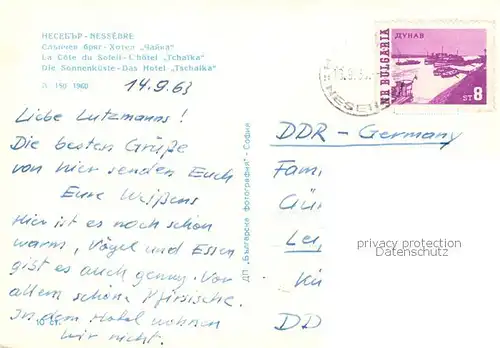 НЕСЕБЪР - NESSÈBRE
Слънчев бряг - Хотел „Чайка“
La Côte du Soleil - L'hôtel „Tchaïka“
Die Sonnenküste - Das Hotel „Tschaïka“
Л 150 1960
14.9.63
Liebe Lutzmanns!
Die besten Grüße
von hier senden Euch
Eure Weißens
Hier ist es noch schön
warm, Vögel und Essen
gibt es auch genug. Vor
allem schöne Pfirsische.
In dem Hotel wohnen
wir nicht.
10 ст.
ДП „Българска фотография“ - София
ДУНАВ
NR BULGARIA
ST 8
NESEB
DDR - Germany
Fam.
Gü
Lei
DD
privacy protection
Datenschutz